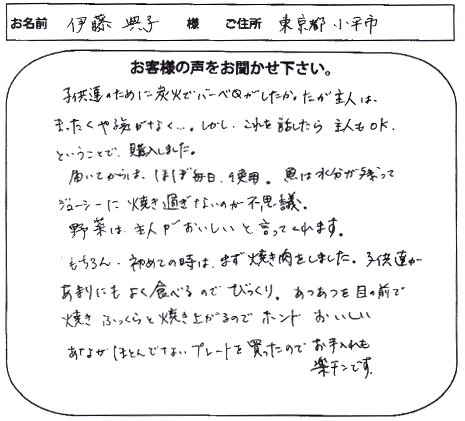 お名前 伊藤 典子 様 ご住所 東京都小平市
お客様の声をお聞かせ下さい。
子供達のために炭火でバーベQがしたか。たが主人は、
まったくやる気がなく…。しかし、これを話したら主人もOK.
ということで、購入しました。
届いてからは、ほぼ毎日、使用。魚は水分が残って
ジューシーに焼き過ぎないのが不思議。
野菜は、主人が"おいしいと言ってくれます。
もちろん、初めての時は、まず焼き肉をしました。子供達が
あまりにもよく食べるのでびっくり。あつあつを目の前で
焼きふっくらと焼き上がるのでホントおいしい
あながほとんどでないプレートを買ったのでお手入れも
楽チンです。